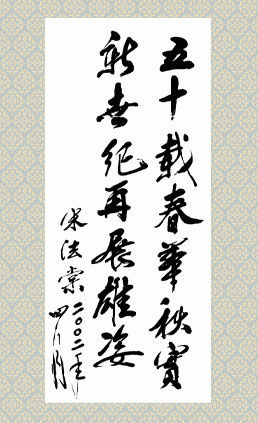 五十载春华秋实
新世纪再展雄姿
宋法棠
二〇〇二年
四月